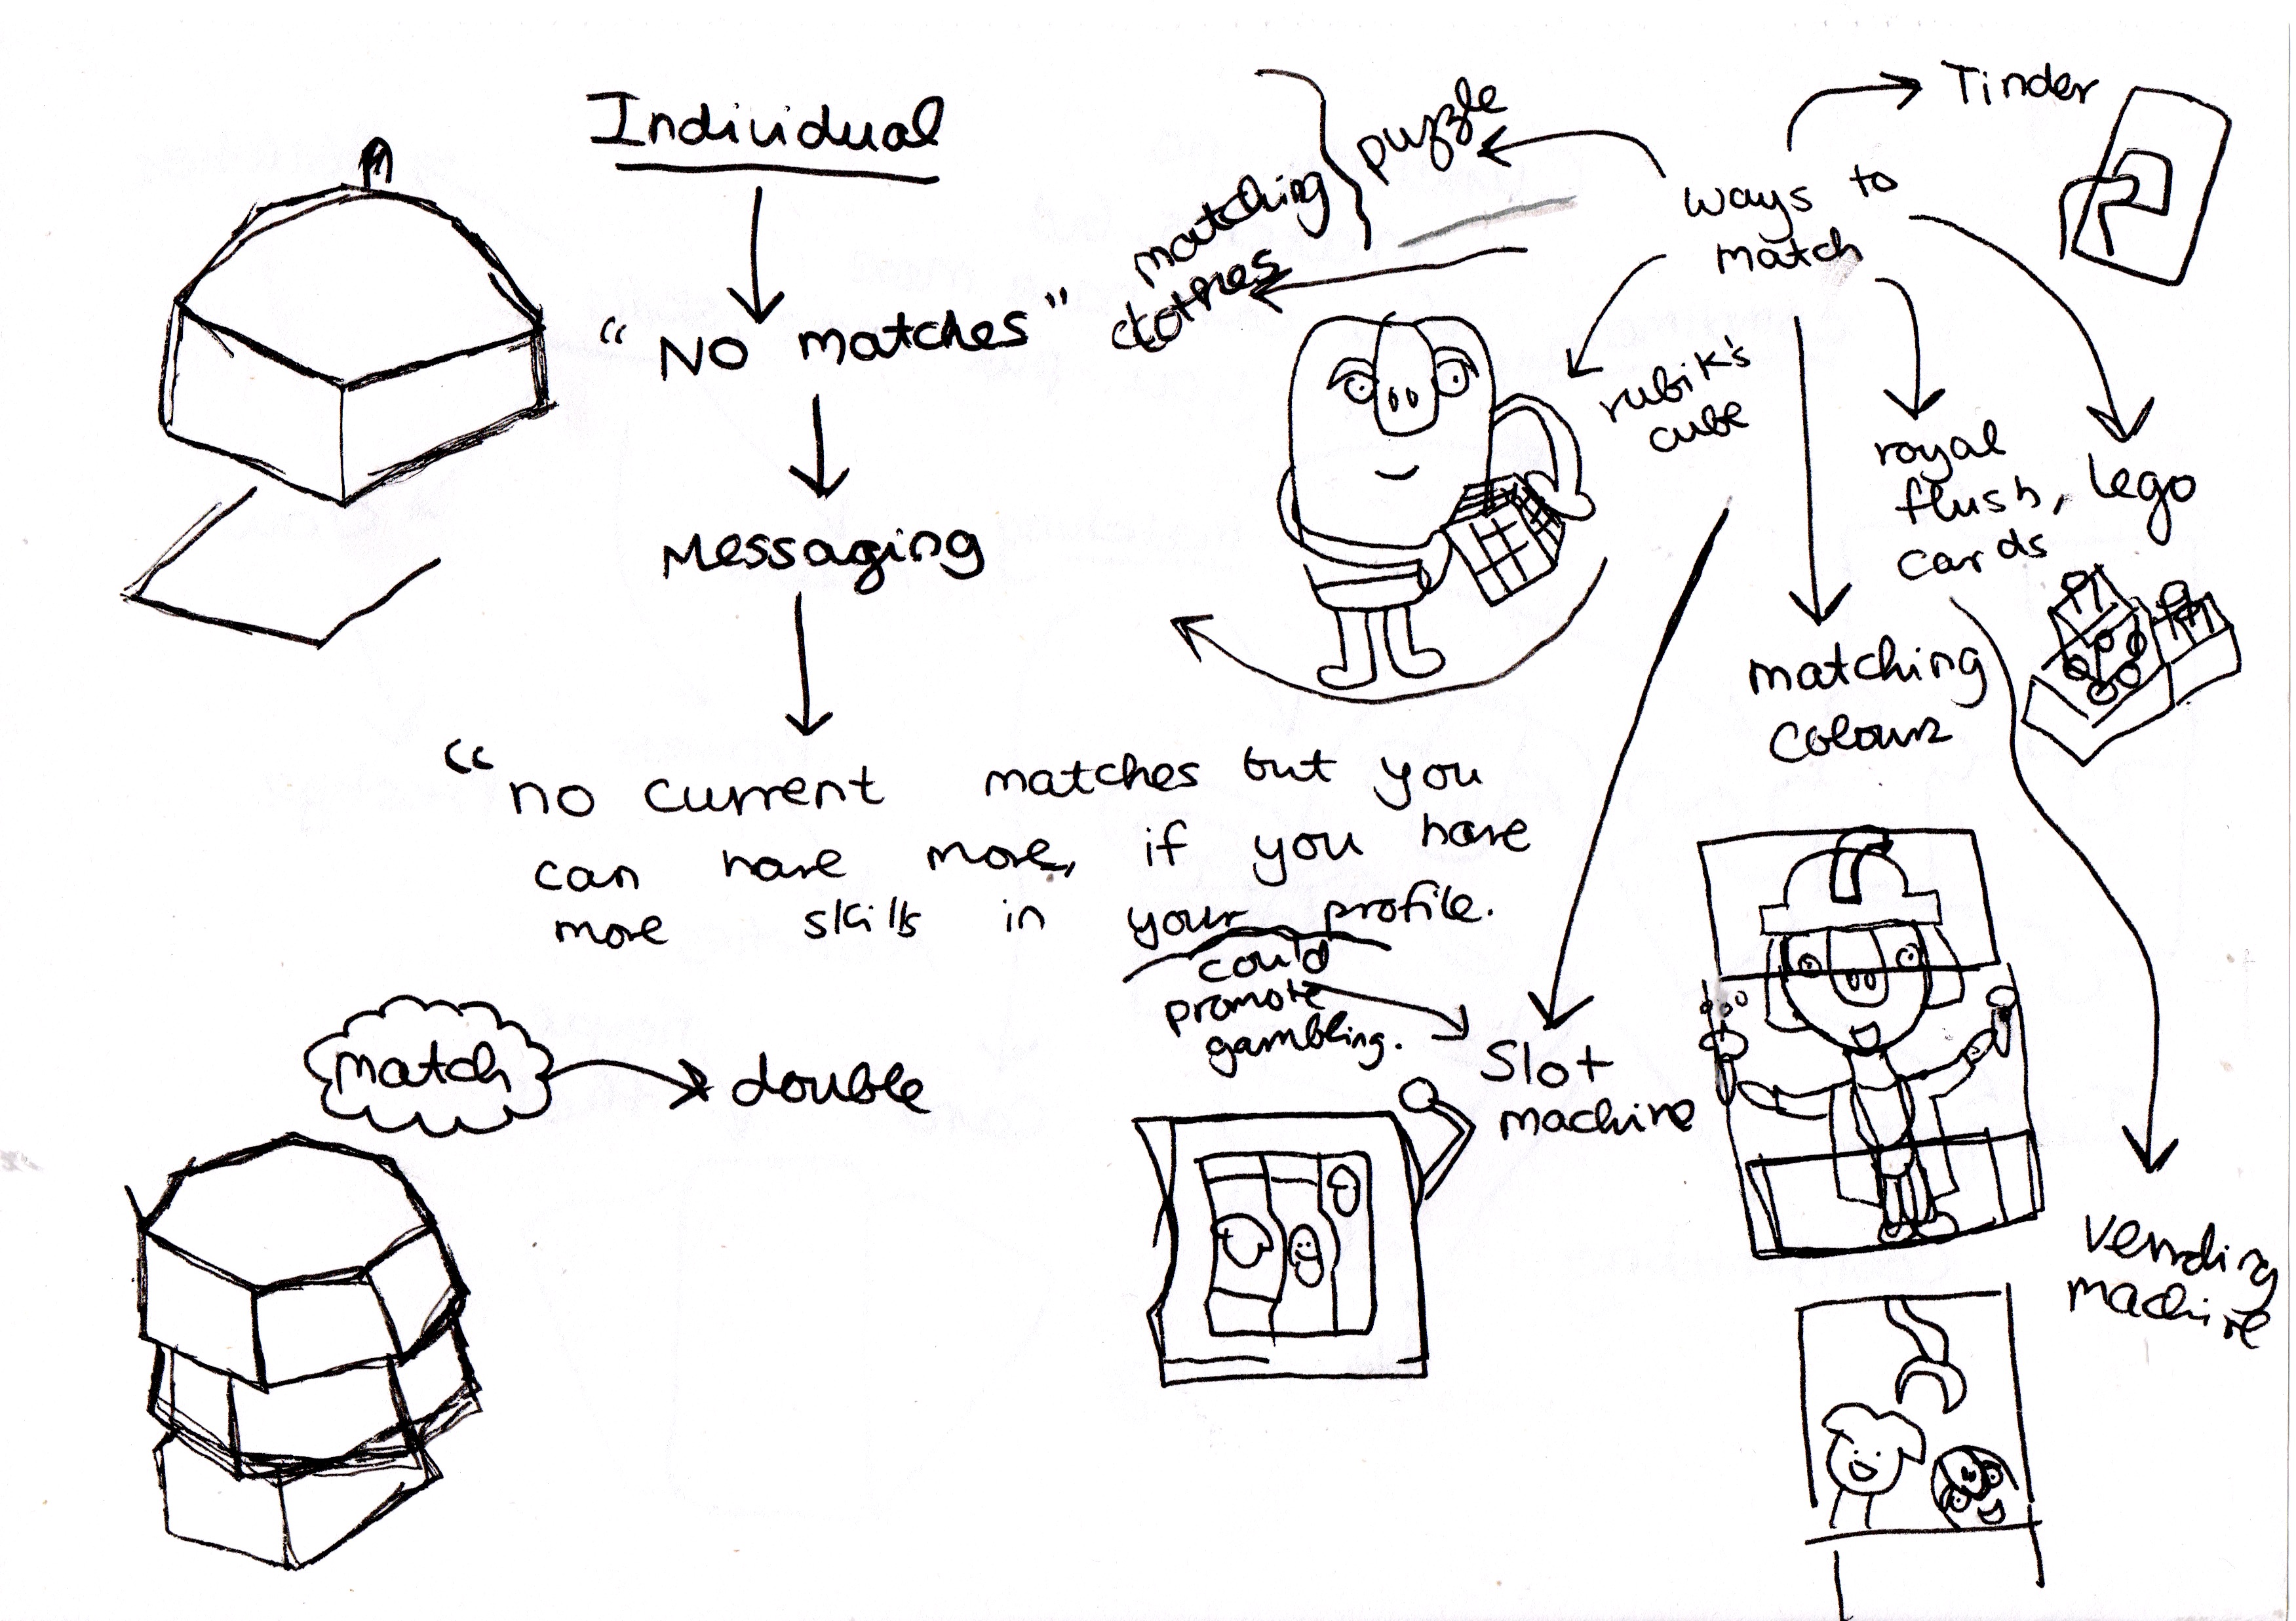 Individual
"No matches"
Messaging
"no current matches but you
can have more, if you have
more skills in your profile.
match
double
ways to
match
Tinder
puzzle
matching
clothes
rubik's
cube
royal
flush,
cards
Lego
matching
colours
could
promote
gambling.
Slot
machine
Vending
machine